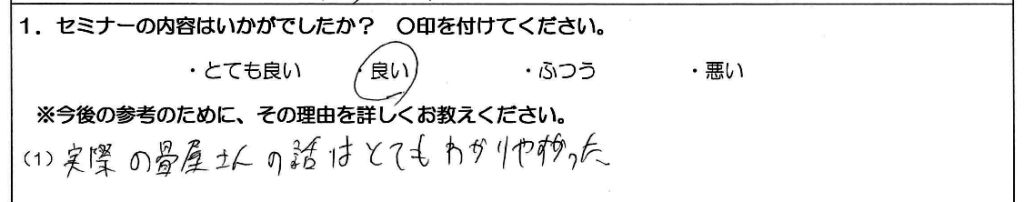 1．セミナーの内容はいかがでしたか？　〇印を付けてください。
・とても良い　・良い　・ふつう　・悪い
※今後の参考のために、その理由を詳しくお教えください。
(1) 実際の畳屋さんの話はとてもわかりやすかった